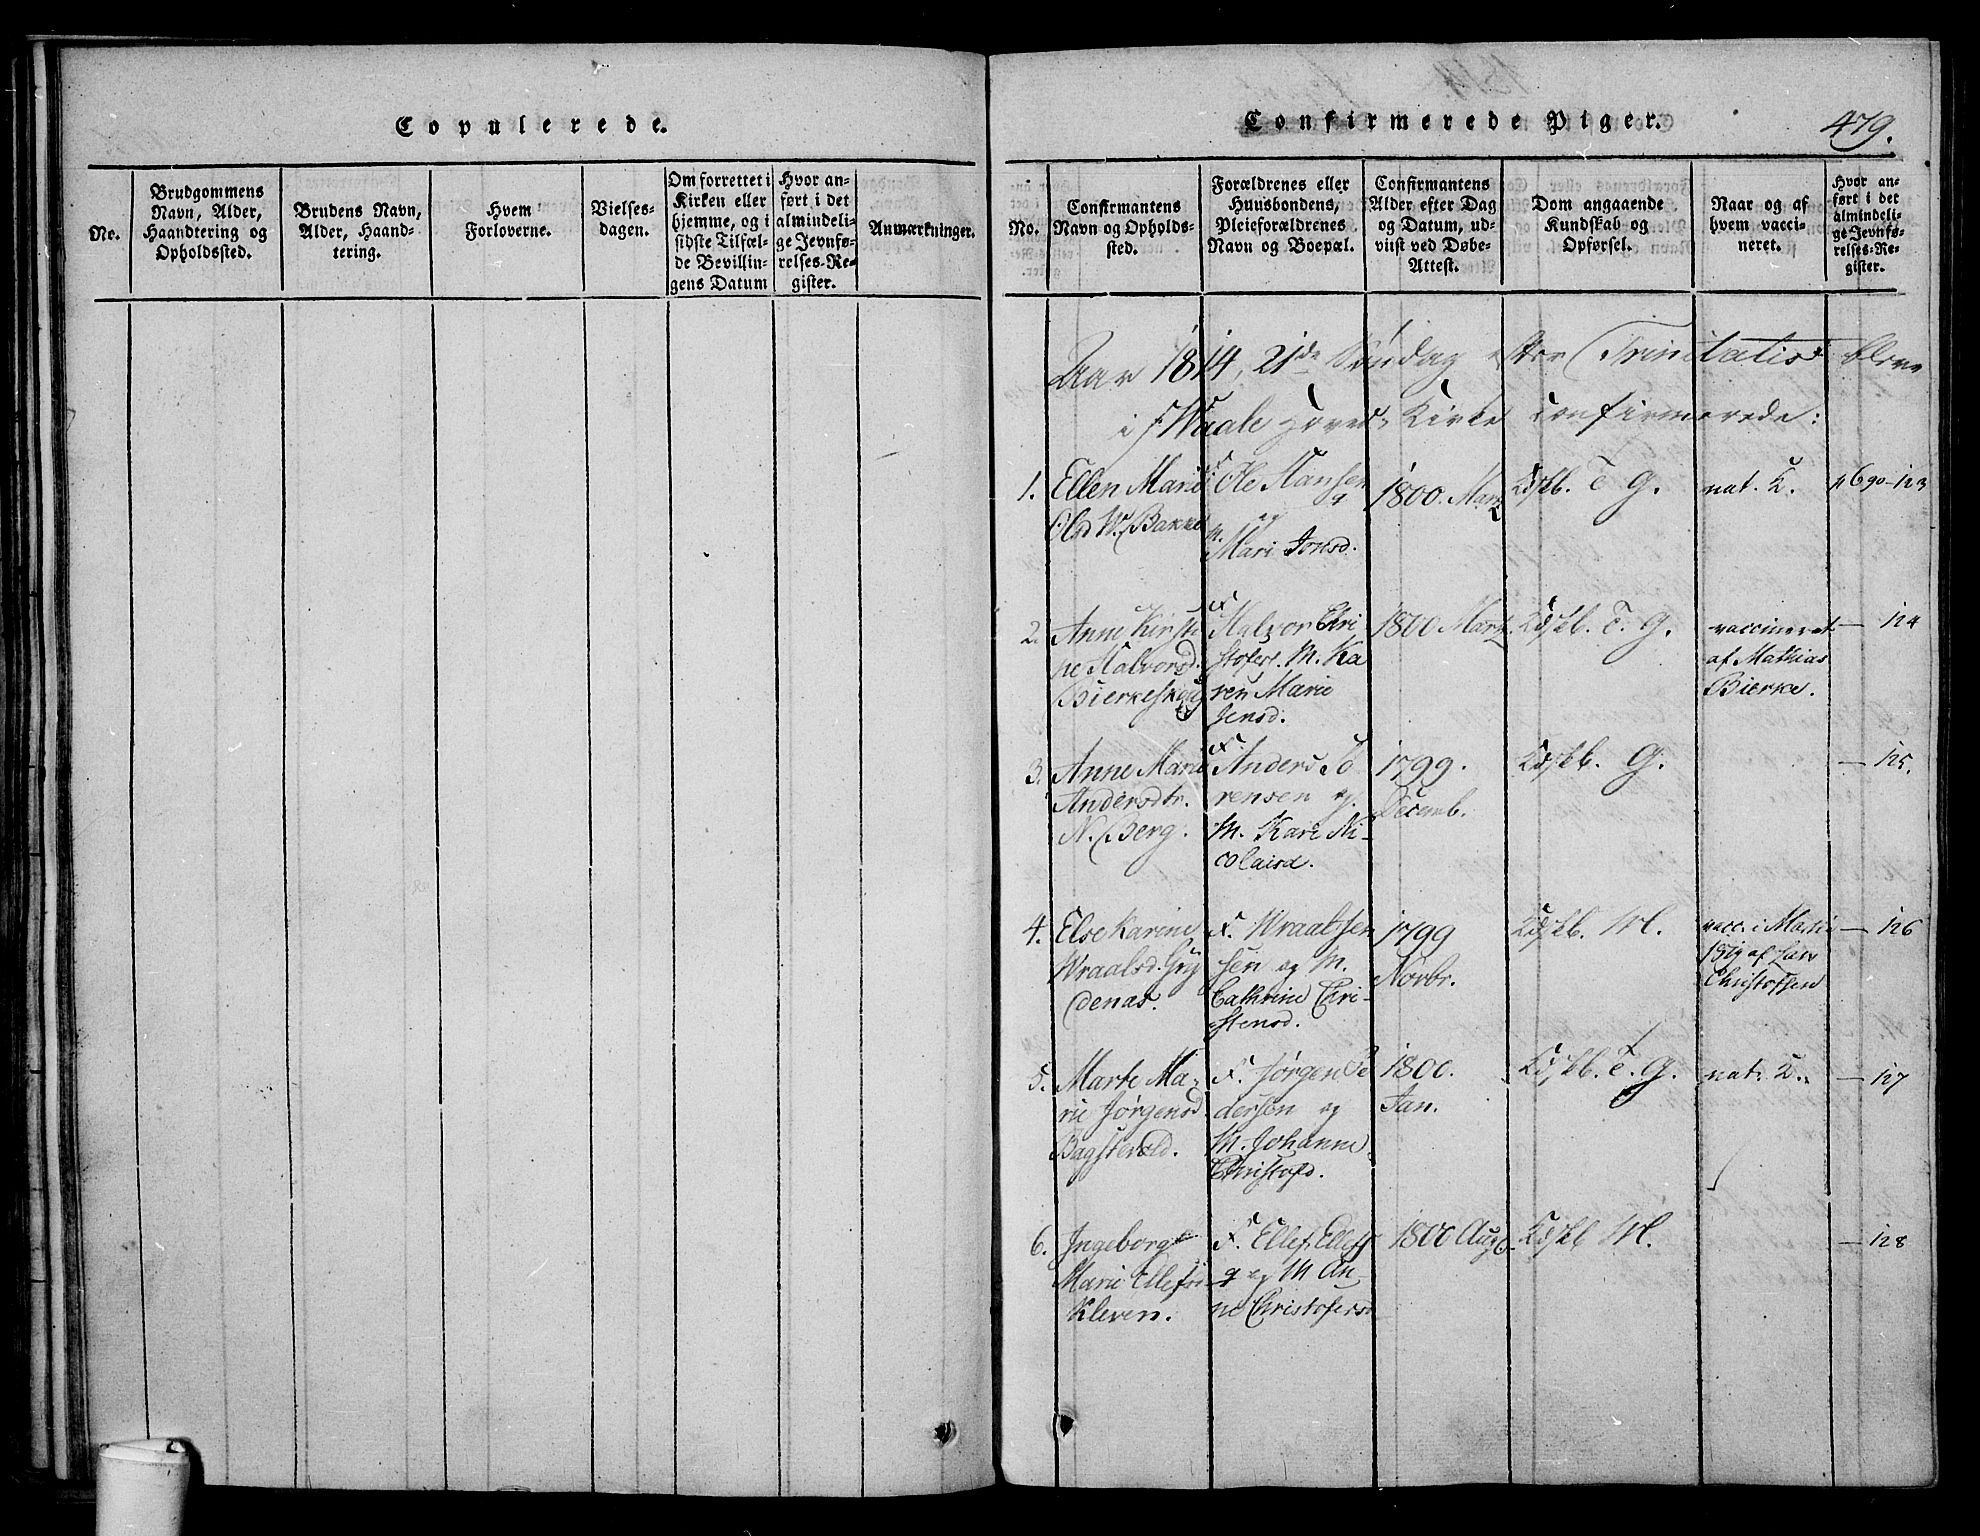 Copulerede.
No.
Brudgommens
Navn, Alder,
Haandtering og
Opholdssted.
Brudens Navn,
Alder, Haand-
tering.
Hvem
Forloverne.
Vielses-
dagen.
Om forrettet i
Kirken eller
hjemme, og i
sidste Tilfæl-
de Bevillin-
gens Datum
Hvor an-
ført i det
almindeli-
ge Jevnfø-
relses-Re-
gister.
Anmærkninger.
Confirmerede Piger.
479.
No.
Confirmantens
Navn og Opholds-
sted.
Forældrenes eller
Huusbondens,
Pleieforældrenes
Navn og Boepæl.
Confirmantens
Alder efter Dag
og Datum, ud-
viist ved Døbe-
Attest.
Dom angaaende
Kundskab og
Opførsel.
Naar og af
hvem vacci-
neret.
Hvor an-
ført i det
almindeli-
ge Jevnfø-
relses-Re-
gister.
Aar 1814, 21de Søndag efter Trinitatis bleve
i Waale Hoved Kirke confirmerede:
1.
Ellen Marie
Olsd W. Bakke
F. Ole Hansen
og
M.
Mari Jonsd.
1800. Martz
Kdskb. T. G.
nat. K.
p 690-123
2.
Anne Kirsti
ne Halvorsd.
Bierkeskoug
F. Halvor Chri
stofers. M. Ka
ren Marie
Jensd.
1800 Martz
Kdskb. T. G.
vaccineret
af Mathias
Bierke.
— 124
3.
Anne Marie
Andersdtr.
N. Berg.
F. Anders So
rensen og
M. Kari Ni-
colaisd.
1799.
Decemb.
Kdskb. G.
— 125.
4.
Else Karine
Wraalsd. Gry
denas.
F. Wraal
sen og M.
Cathrine Chri-
stensd.
1799
Novbr.
Kdskb. M.
vacc. i Martii
af Lars
Christofsen
— 126
5.
Marte Ma-
rie Jørgensd.
F. Jørgen Pe
dersen og
M. Johanne
Christofd.
1800.
Jan.
Kdskb. T. G.
nat. K.
— 127
6.
Ingeborg
Marie Ellefsd
Kleven.
F. Ellef Ellefs
og M An
ne Christofersd
1800 Aug.
Kdskb M.
— 128